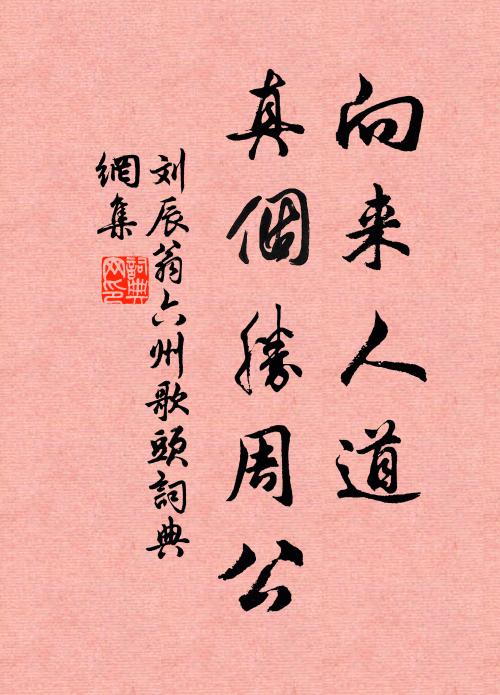 向来人道
真個勝周公
刘辰翁六州歌頭詞典
網集
詞典
网印